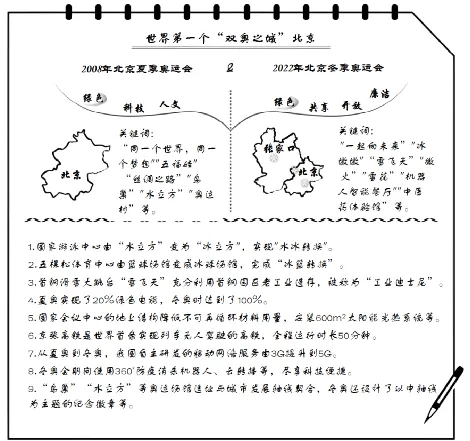 世界第一个“双奥之城”北京
2008年北京夏季奥运会 & 2022年北京冬季奥运会
绿色 科技 人文
绿色 共享 开放 廉洁
北京
关键词:
“同一个世界，同一
个梦想”“五福娃”
“丝绸之路”“鸟
巢”“水立方”“奥运
村”等。
张家口
北京
关键词:
“一起向未来”“冰
墩墩”“雪飞天”“微
火”“雪花”“机器
人智能餐厅”“中医
药体验馆”等。
1.国家游泳中心由“水立方”变为“冰立方”，实现“水冰转换”。
2.五棵松体育中心由篮球场馆变成冰球场馆，完成“冰篮转换”。
3.首钢滑雪大跳台“雪飞天”充分利用首钢园区老工业遗存，被称为“工业迪士尼”。
4.夏奥实现了20%绿色电能，冬奥时达到了100%。
5.国家会议中心的地上结构降低不可再循环材料用量，安装600m²太阳能光热系统等。
6.京张高铁是世界首条实现列车无人驾驶的高铁，全程运行时长50分钟。
7.从夏奥到冬奥，我国自主研发的移动网络服务由3G提升到5G。
8.冬奥会期间使用360°防疫消杀机器人、云转播等，尽享科技便捷。
9.“鸟巢”“水立方”等奥运场馆选址与城市发展轴线契合，冬奥还设计了以中轴线
为主题的纪念徽章等。